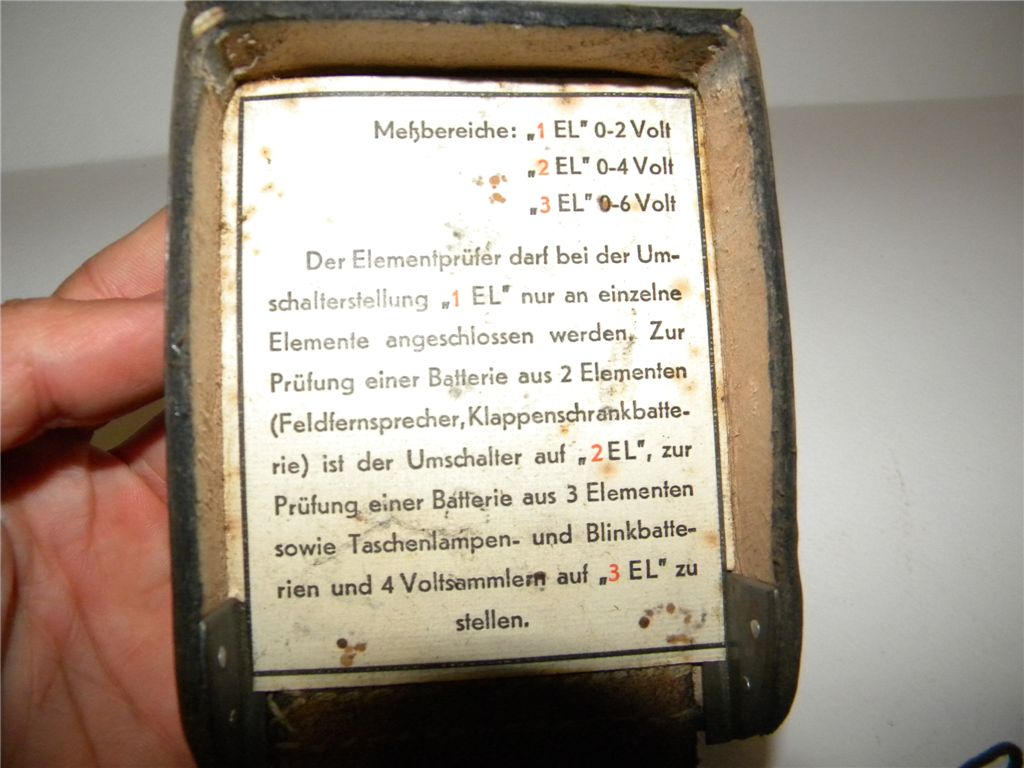 Meßbereiche: „1 EL" 0-2 Volt
„2 EL" 0-4 Volt
„3 EL" 0-6 Volt
Der Elementprüfer darf bei der Um-
schalterstellung „1 EL" nur an einzelne
Elemente angeschlossen werden. Zur
Prüfung einer Batterie aus 2 Elementen
(Feldfernsprecher, Klappenschrankbatte-
rie) ist der Umschalter auf „2EL", zur
Prüfung einer Batterie aus 3 Elementen
sowie Taschenlampen- und Blinkbatte-
rien und 4 Voltsammlern auf „3 EL" zu
stellen.